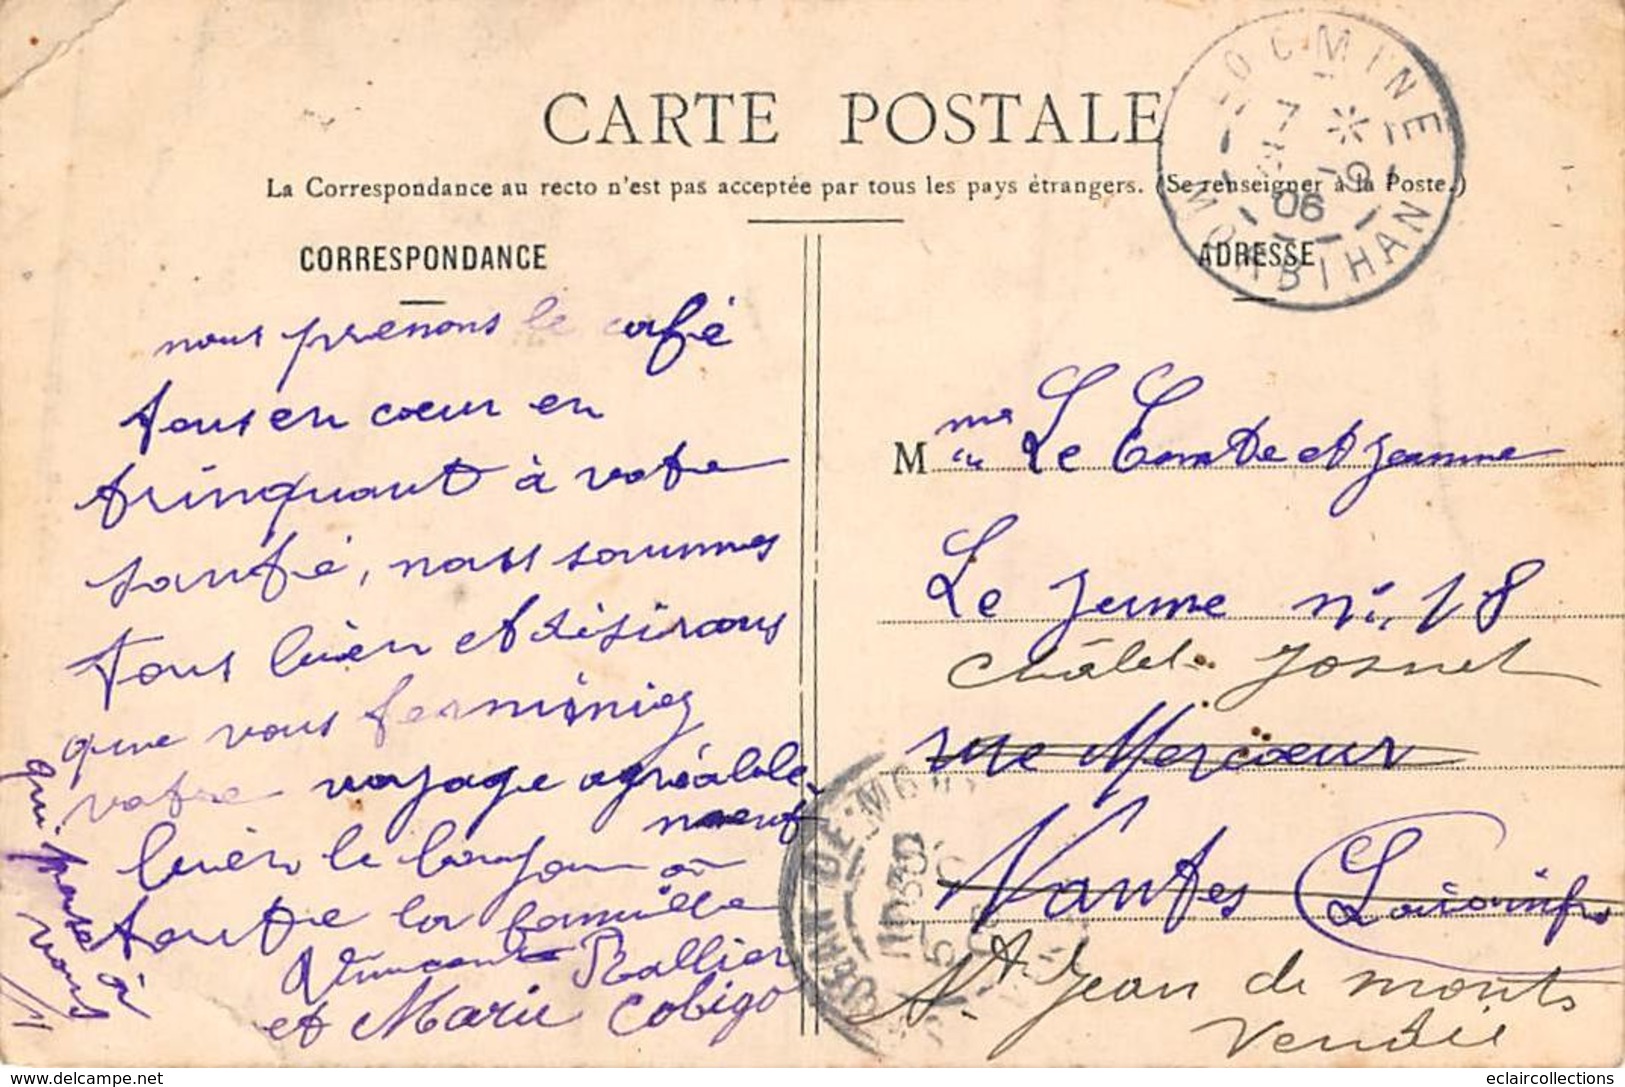 CARTE POSTALE
La Correspondance au recto n'est pas acceptée par tous les pays étrangers. (Se renseigner à la Poste.)
CORRESPONDANCE
nous prenons le café
tous en cœur en
trinquant à votre
santé, nous sommes
tous bien et désirons
que vous terminiez
votre voyage agréable-
ment
bien le bonjour à
toute la famille
Vincent Rallier
et Marie Cobigo
qui pense à
vous
ADRESSE
LOCMINE
7
*
9
06
MORBIHAN
M me Le Comte et Jeanne
Le Jeune n: 18
Châlet Josnet
rue Mercœur
Nantes Loire infre
St Jean de monts
Vendée
JEAN DE MONTS
eclaircollections